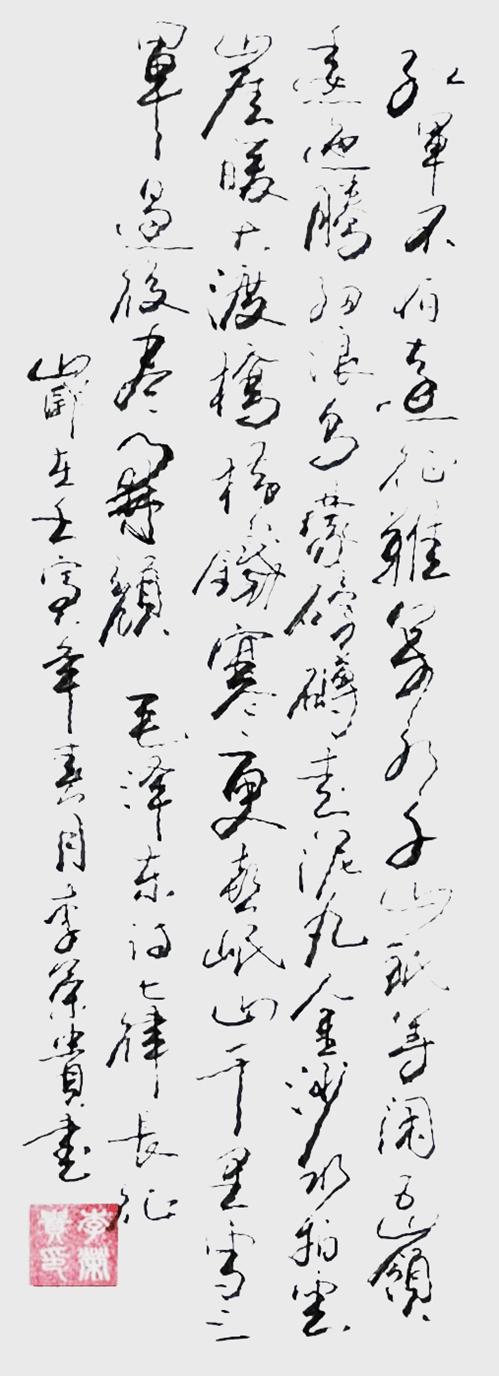 紅軍不怕遠征難萬水千山祇等闲五嶺
逶迤騰細浪烏蒙磅礴走泥丸金沙水拍雲
崖暖大渡橋橫鐵寒更喜岷山千里雪三
軍過後盡開顔 毛泽东詩七律長征
在壬寅年春月李荣貴書
李榮貴印